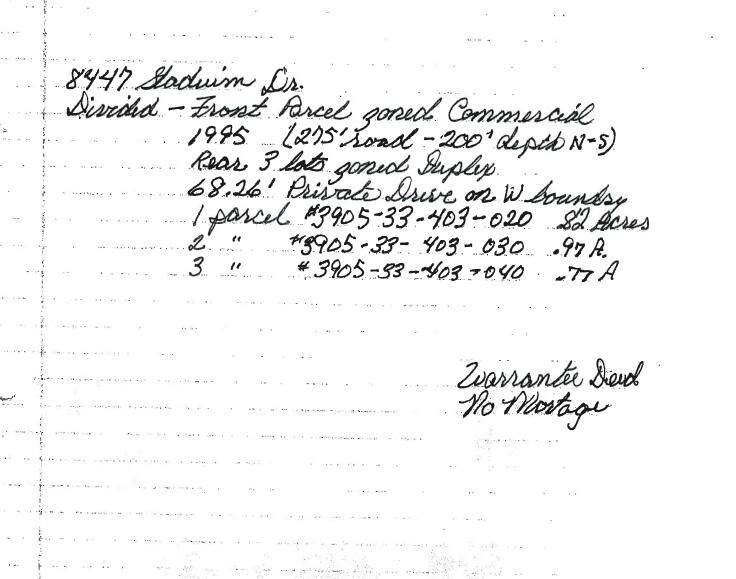 8447 Staduim Dr.
Divided - Front Parcel zoned Commercial
1995 (275' road - 200' depth N-S)
Rear 3 lots zoned Duplex
68.26' Private Drive on W boundry
1 parcel #3905-33-403-020 .82 Acres
2 " #3905-33-403-030 .97 A.
3 " #3905-33-403-040 .77 A
Warrantee Deed
No Mortage